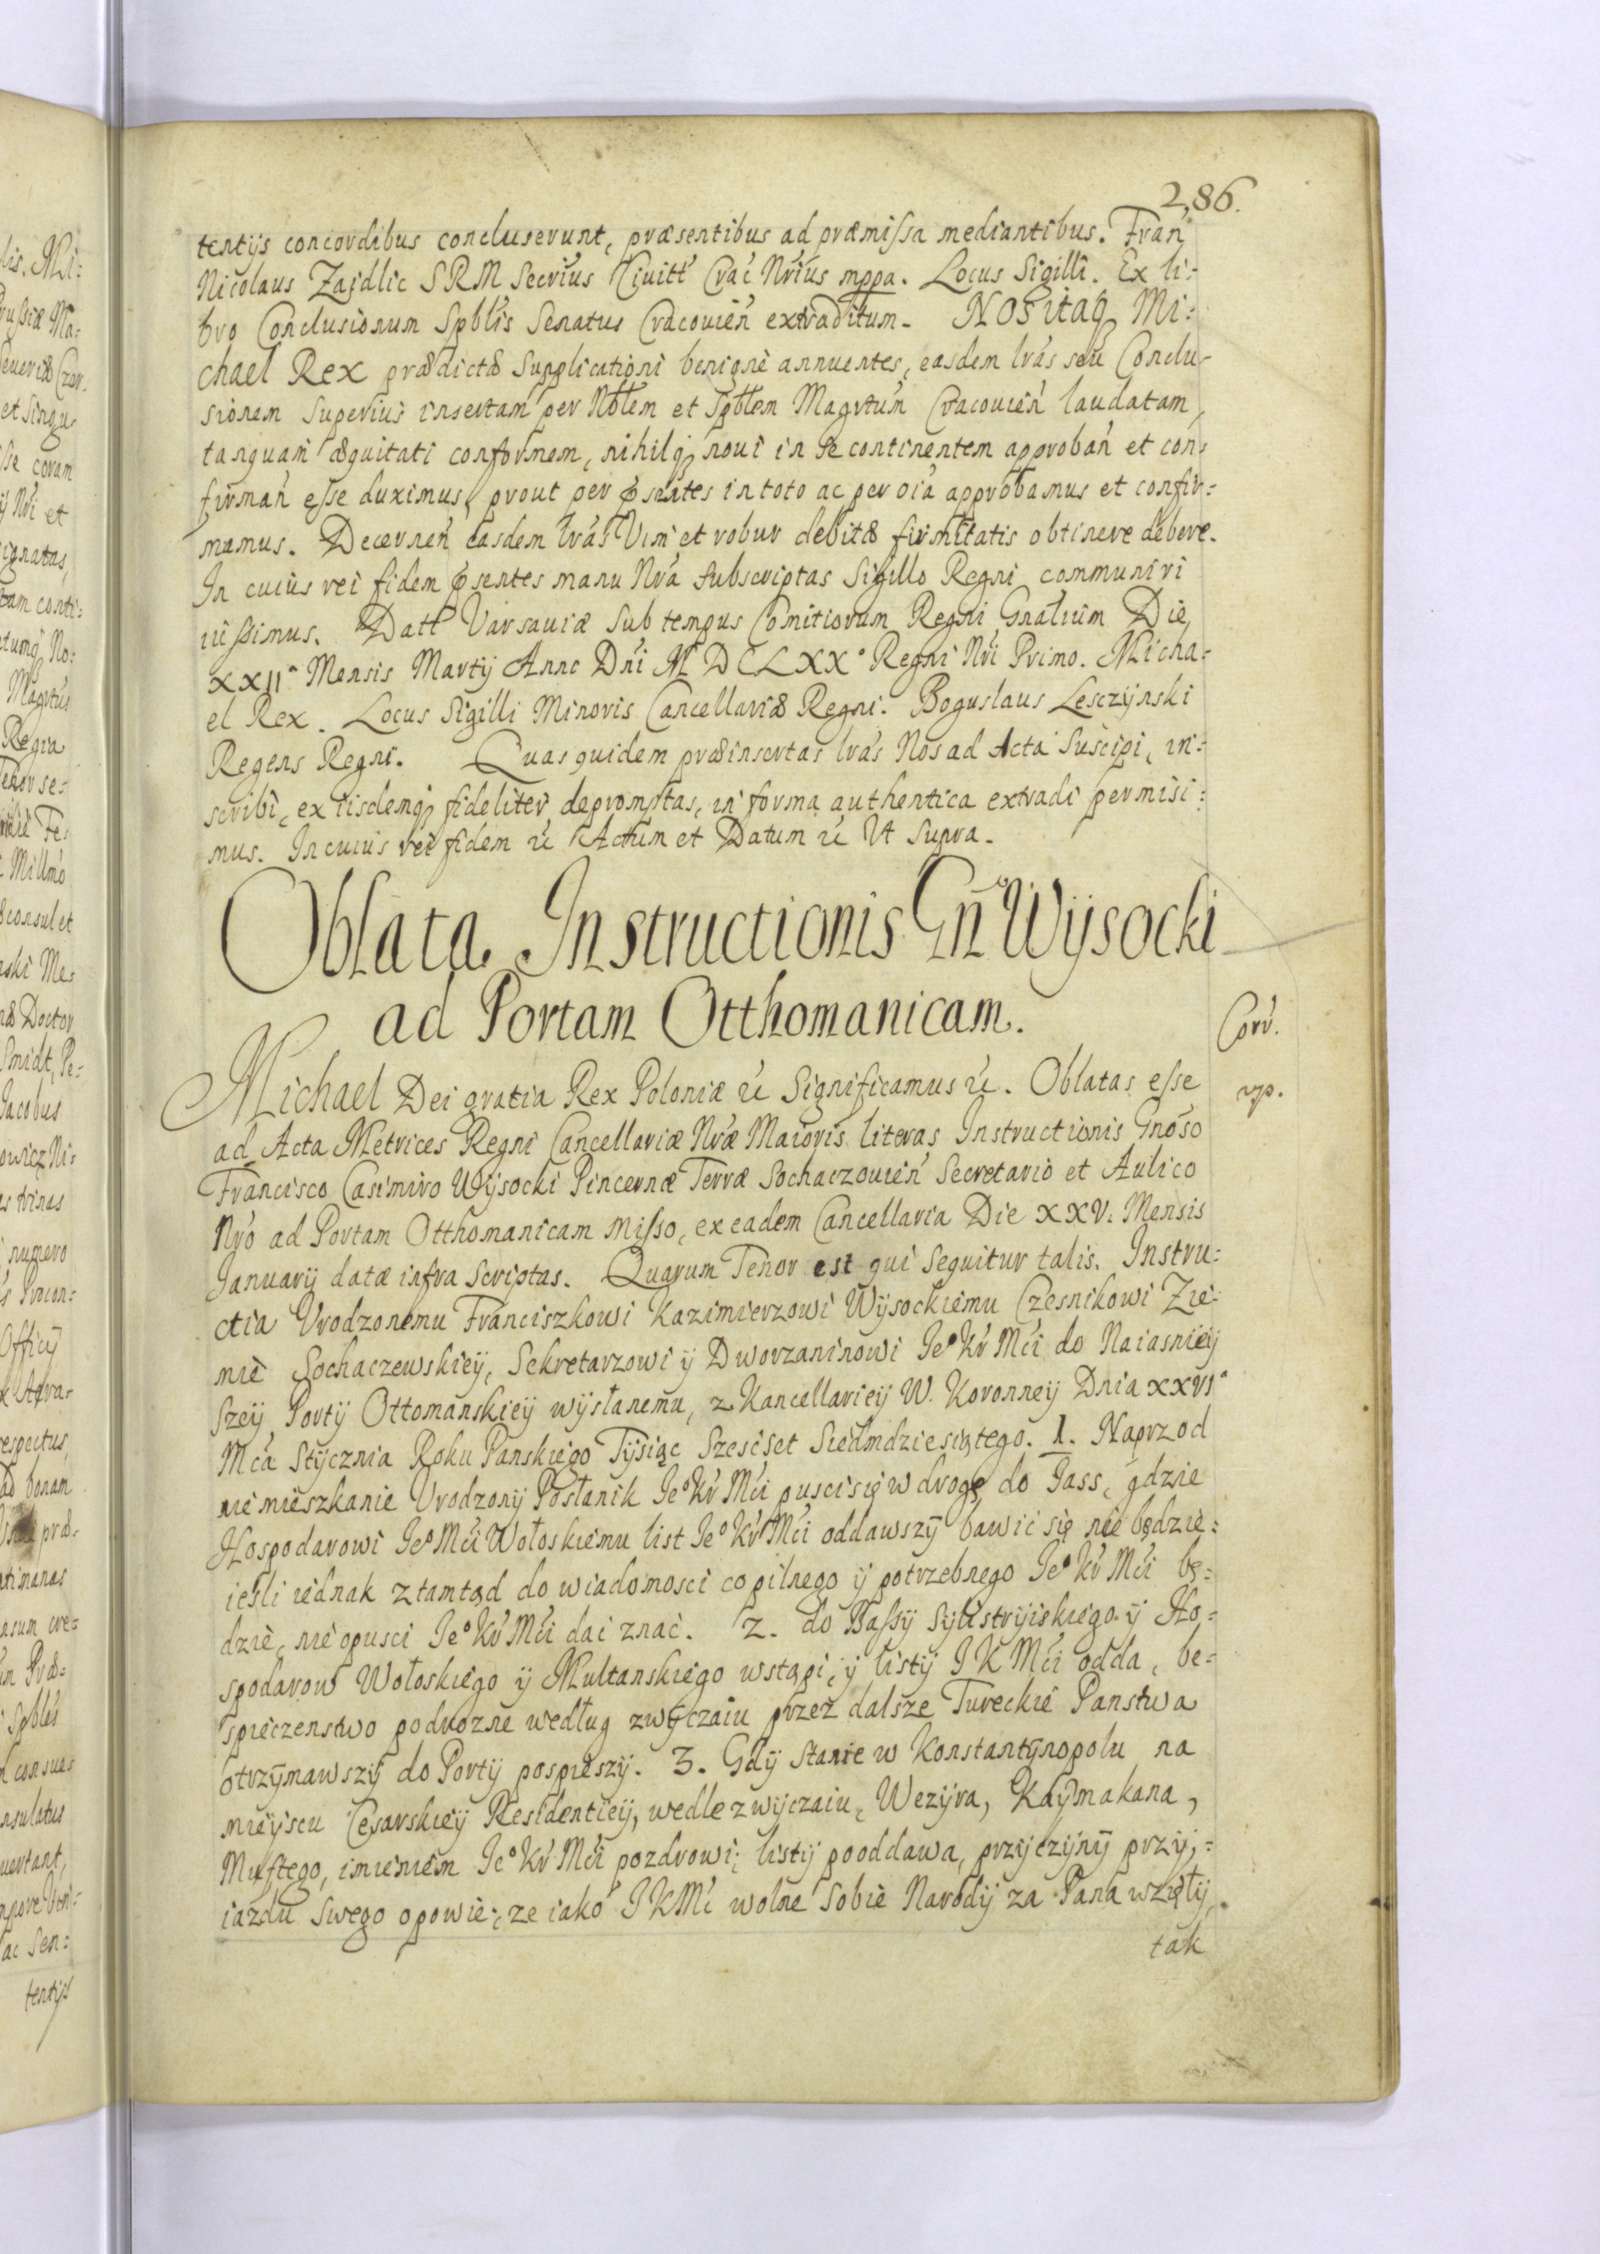 286.
tentijs concordibus concluserunt, præsentibus ad præmissa mediantibus. Fran
Nicolaus Zajdlic SRM Secrius Ciuitt Crac Nrius mppa. Locus Sigilli. Ex li-
bro Conclusionum Spblis Senatus Cracouien extraditum. NOS itaq Mi:
chael Rex prædictæ Supplicationi benigne annuentes, easdem lras seu Conclu-
sionem superius insertam per Noblem et Spblem Magrtum Cracouien laudatam,
tanquam æquitati conformem, nihilq noui in se continentem approban et con:
firman esse duximus, prout per psentes in toto ac per oia approbamus et confir:
mamus. Decernen easdem lras Vim et robur debitæ firmitatis obtinere debere.
In cuius rei fidem psentes manu Nra subscriptas Sigillo Regni communiri
iussimus. Datt Varsauiæ sub tempus Comitiorum Regni Gnalium Die
XXIIa Mensis Martij Anno Dni MDCLXXo Regni Nri Primo. Micha:
el Rex. Locus Sigilli Minoris Cancellariæ Regni. Boguslaus Lesczynski
Regens Regni. Quas quidem præinsertas lras Nos ad Acta Suscipi, in:
scribi, ex iisdemq fideliter depromptas, in forma authentica extradi permisi:
mus. In cuius rei fidem &c Actum et Datum &c Ut Supra.
Oblata Instructionis Gn Wysocki
ad Portam Otthomanicam.
Corr.
Michael Dei gratia Rex Poloniæ &c Significamus &c. Oblatas esse
ad Acta Metrices Regni Cancellariæ Nræ Maioris literas Instructionis Gnoso
Francisco Casimiro Wysocki Pincernæ Terræ Sochaczouien Secretario et Aulico
Nro ad Portam Otthomanicam misso, ex eadem Cancellaria Die XXV. Mensis
Januarij datæ infra scriptas. Quarum Tenor est qui sequitur talis. Instru:
ctia Vrodzonemu Franciszkowi Kazimierzowi Wysockiemu Czesnikowi Zie:
mie Sochaczewskiey, Sekretarzowi ÿ Dworzaninowi Jeo Kr Mci do Naiasniey
szey Porty Ottomanskiey wysłanemu, z Kancellariey W. Koronney Dnia XXVIa
Mca Stycznia Roku Panskiego Tysiąc Szescset Siedmdziesiątego. 1. Naprzod
nie mieszkanie Vrodzony Posłanik Jeo Kr Mci pusci się w drogę do Jass, gdzie
Hospodarowi Jeo Mci Wołoskiemu list Jeo Kr Mci oddawszy bawic się nie będzie:
iesli iednak ztamtąd do wiadomosci co pilnego ÿ potrzebnego Jeo Kr Mci bę:
dzie, nie opusci Jeo Kr Mci dai znac. 2. do Bassy Sylistryiskiego ÿ Ho:
spodarow Wołoskiego ÿ Multanskiego wstąpi, ÿ listy J K Mci odda, be:
spieczenstwo podrozne według zwyczaiu przez dalsze Tureckie Panstwa
otrzymawszy do Porty pospieszy. 3. Gdy stanie w Konstantynopolu na
mieyscu Cesarskiey Residentiey, wedle zwyczaiu, Wezyra, Kaymakana,
Muftego, imieniem Jeo Kr Mci pozdrowi, listy pooddawa, przyczyny przy:
iazdu swego opowie, ze iako J K Mc wolne sobie Narody za Pana wzięły,
tak